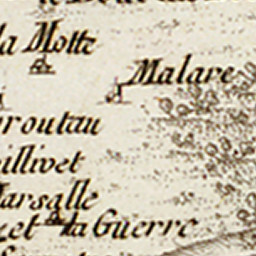 la Motte
Malare
routau
illivet
arsalle
et la Guerre